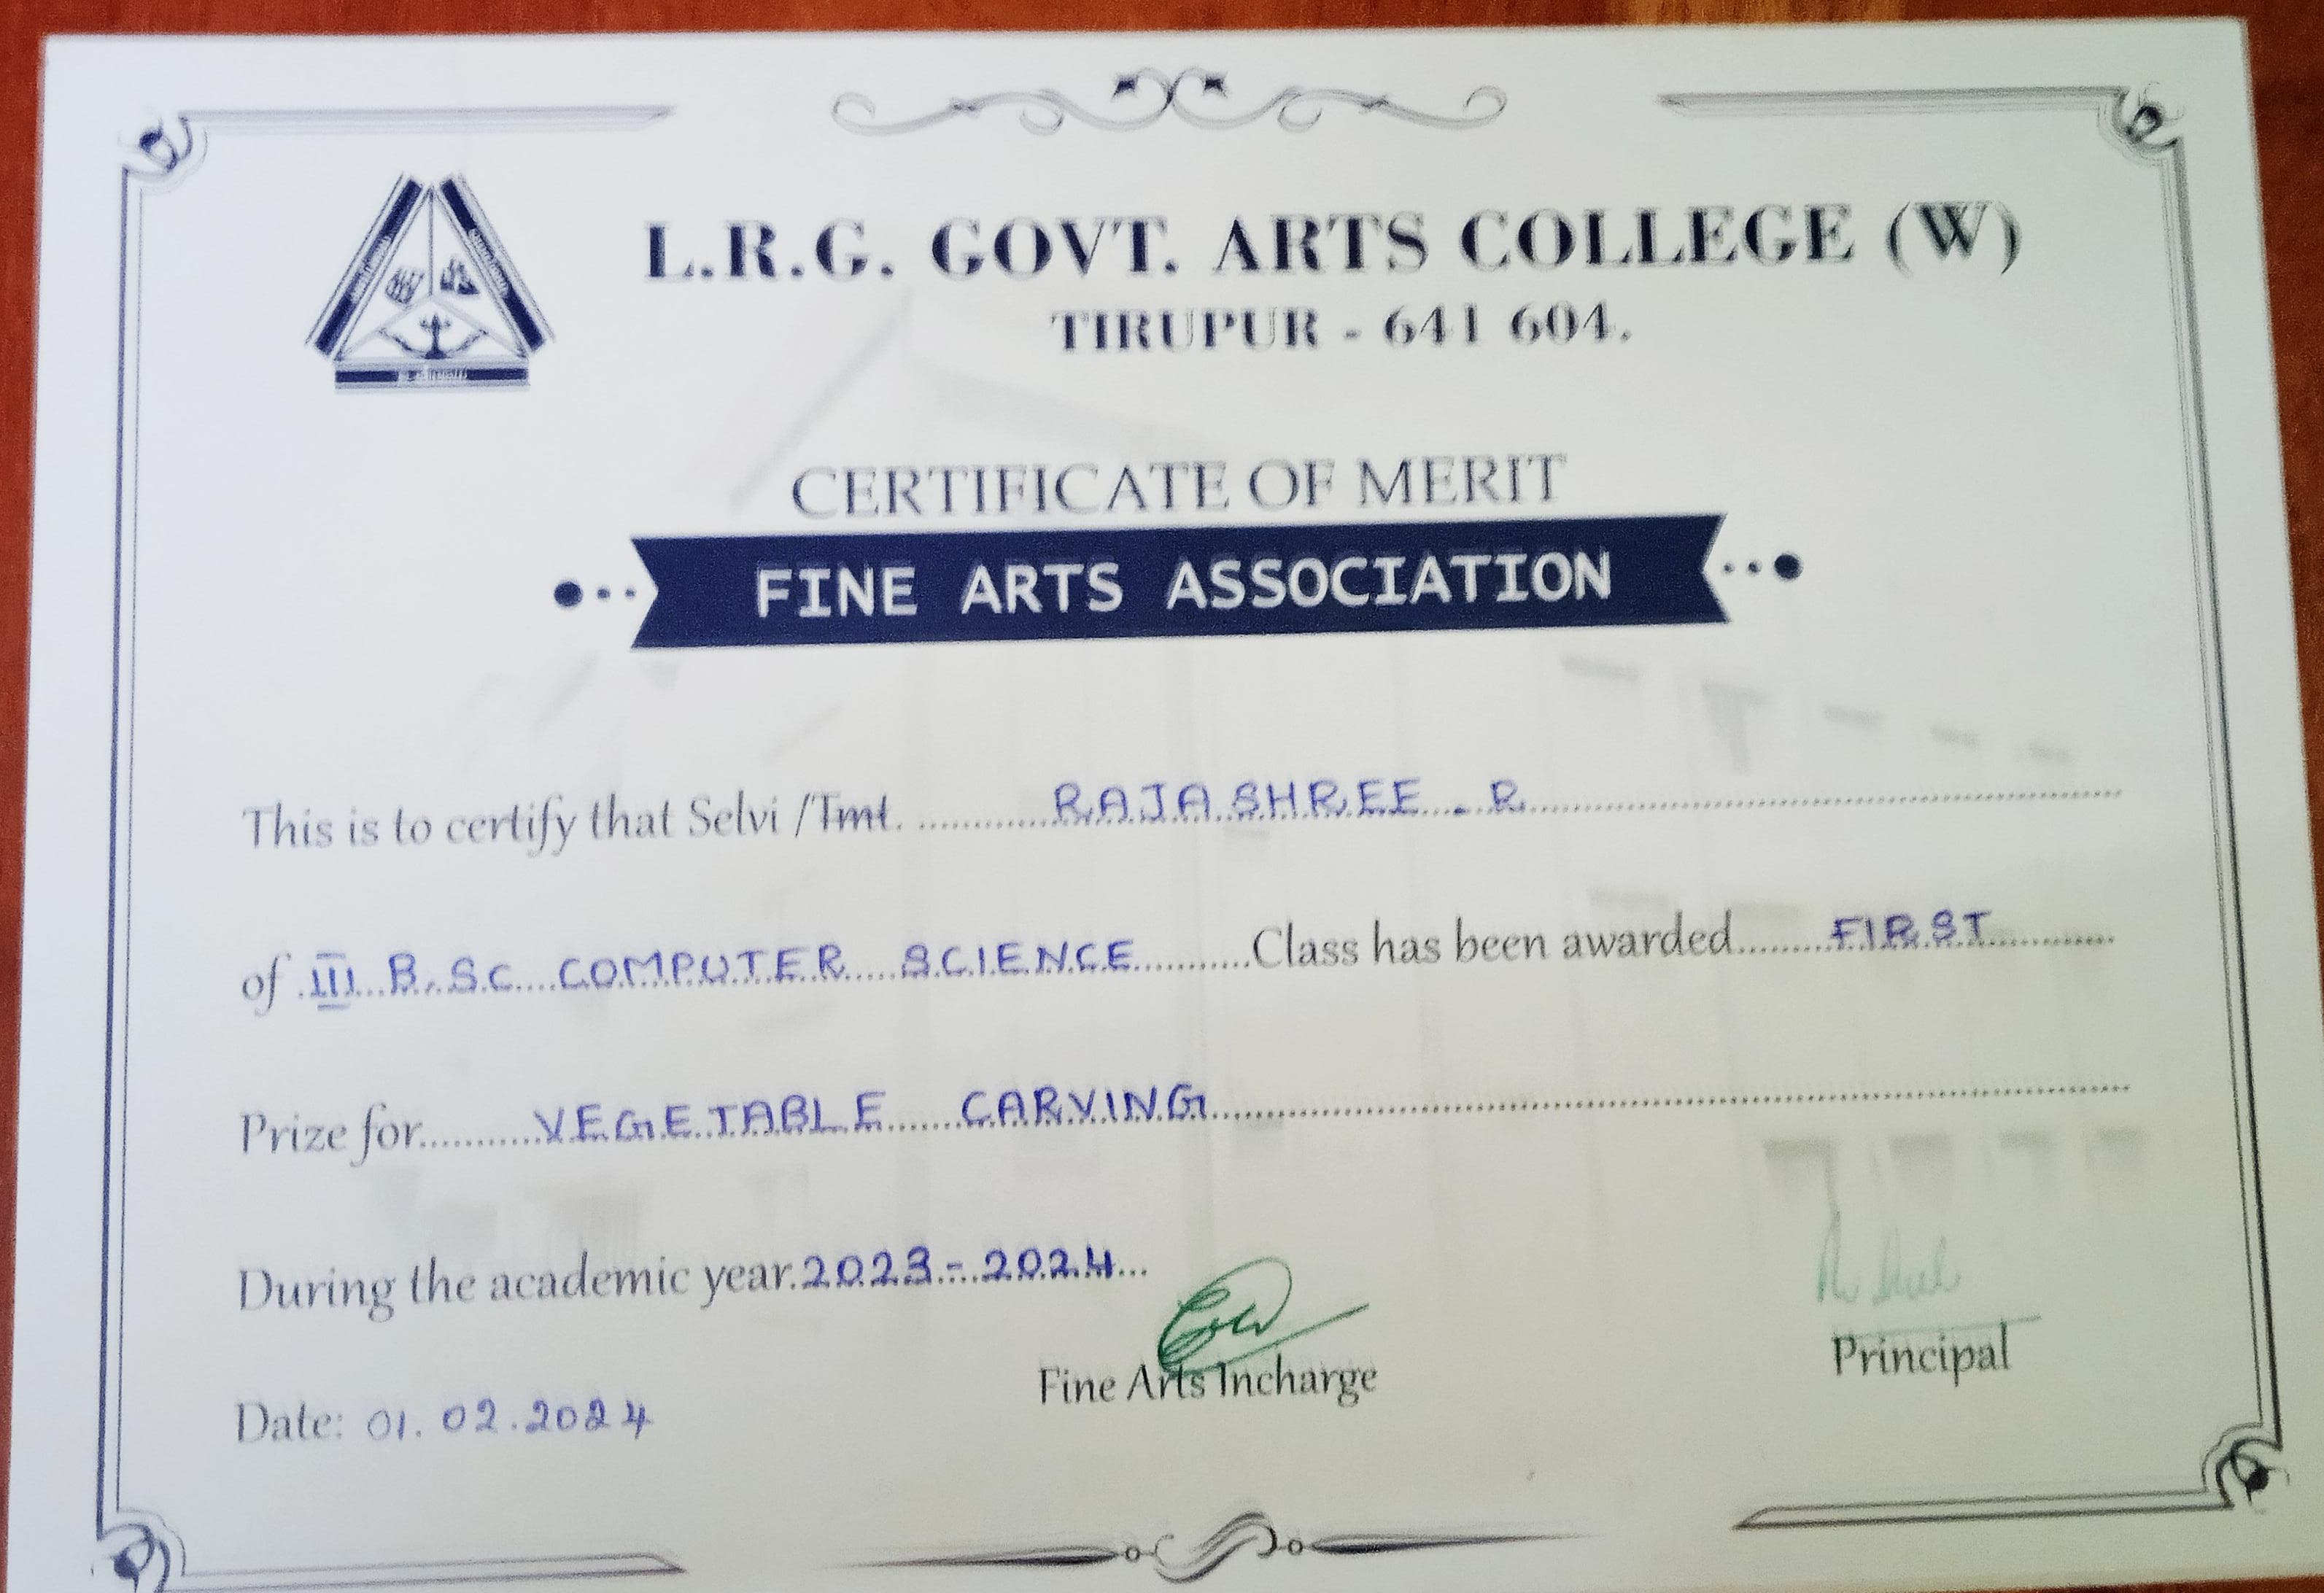 L.R.G. GOVT. ARTS COLLEGE (W)
TIRUPUR - 641 604.
CERTIFICATE OF MERIT
FINE ARTS ASSOCIATION
This is to certify that Selvi /Tmt. RAJASHREE . R
of III B.Sc COMPUTER SCIENCE Class has been awarded FIRST
Prize for VEGETABLE CARVING
During the academic year 2023 - 2024
Fine Arts Incharge
Principal
Date: 01.02.2024